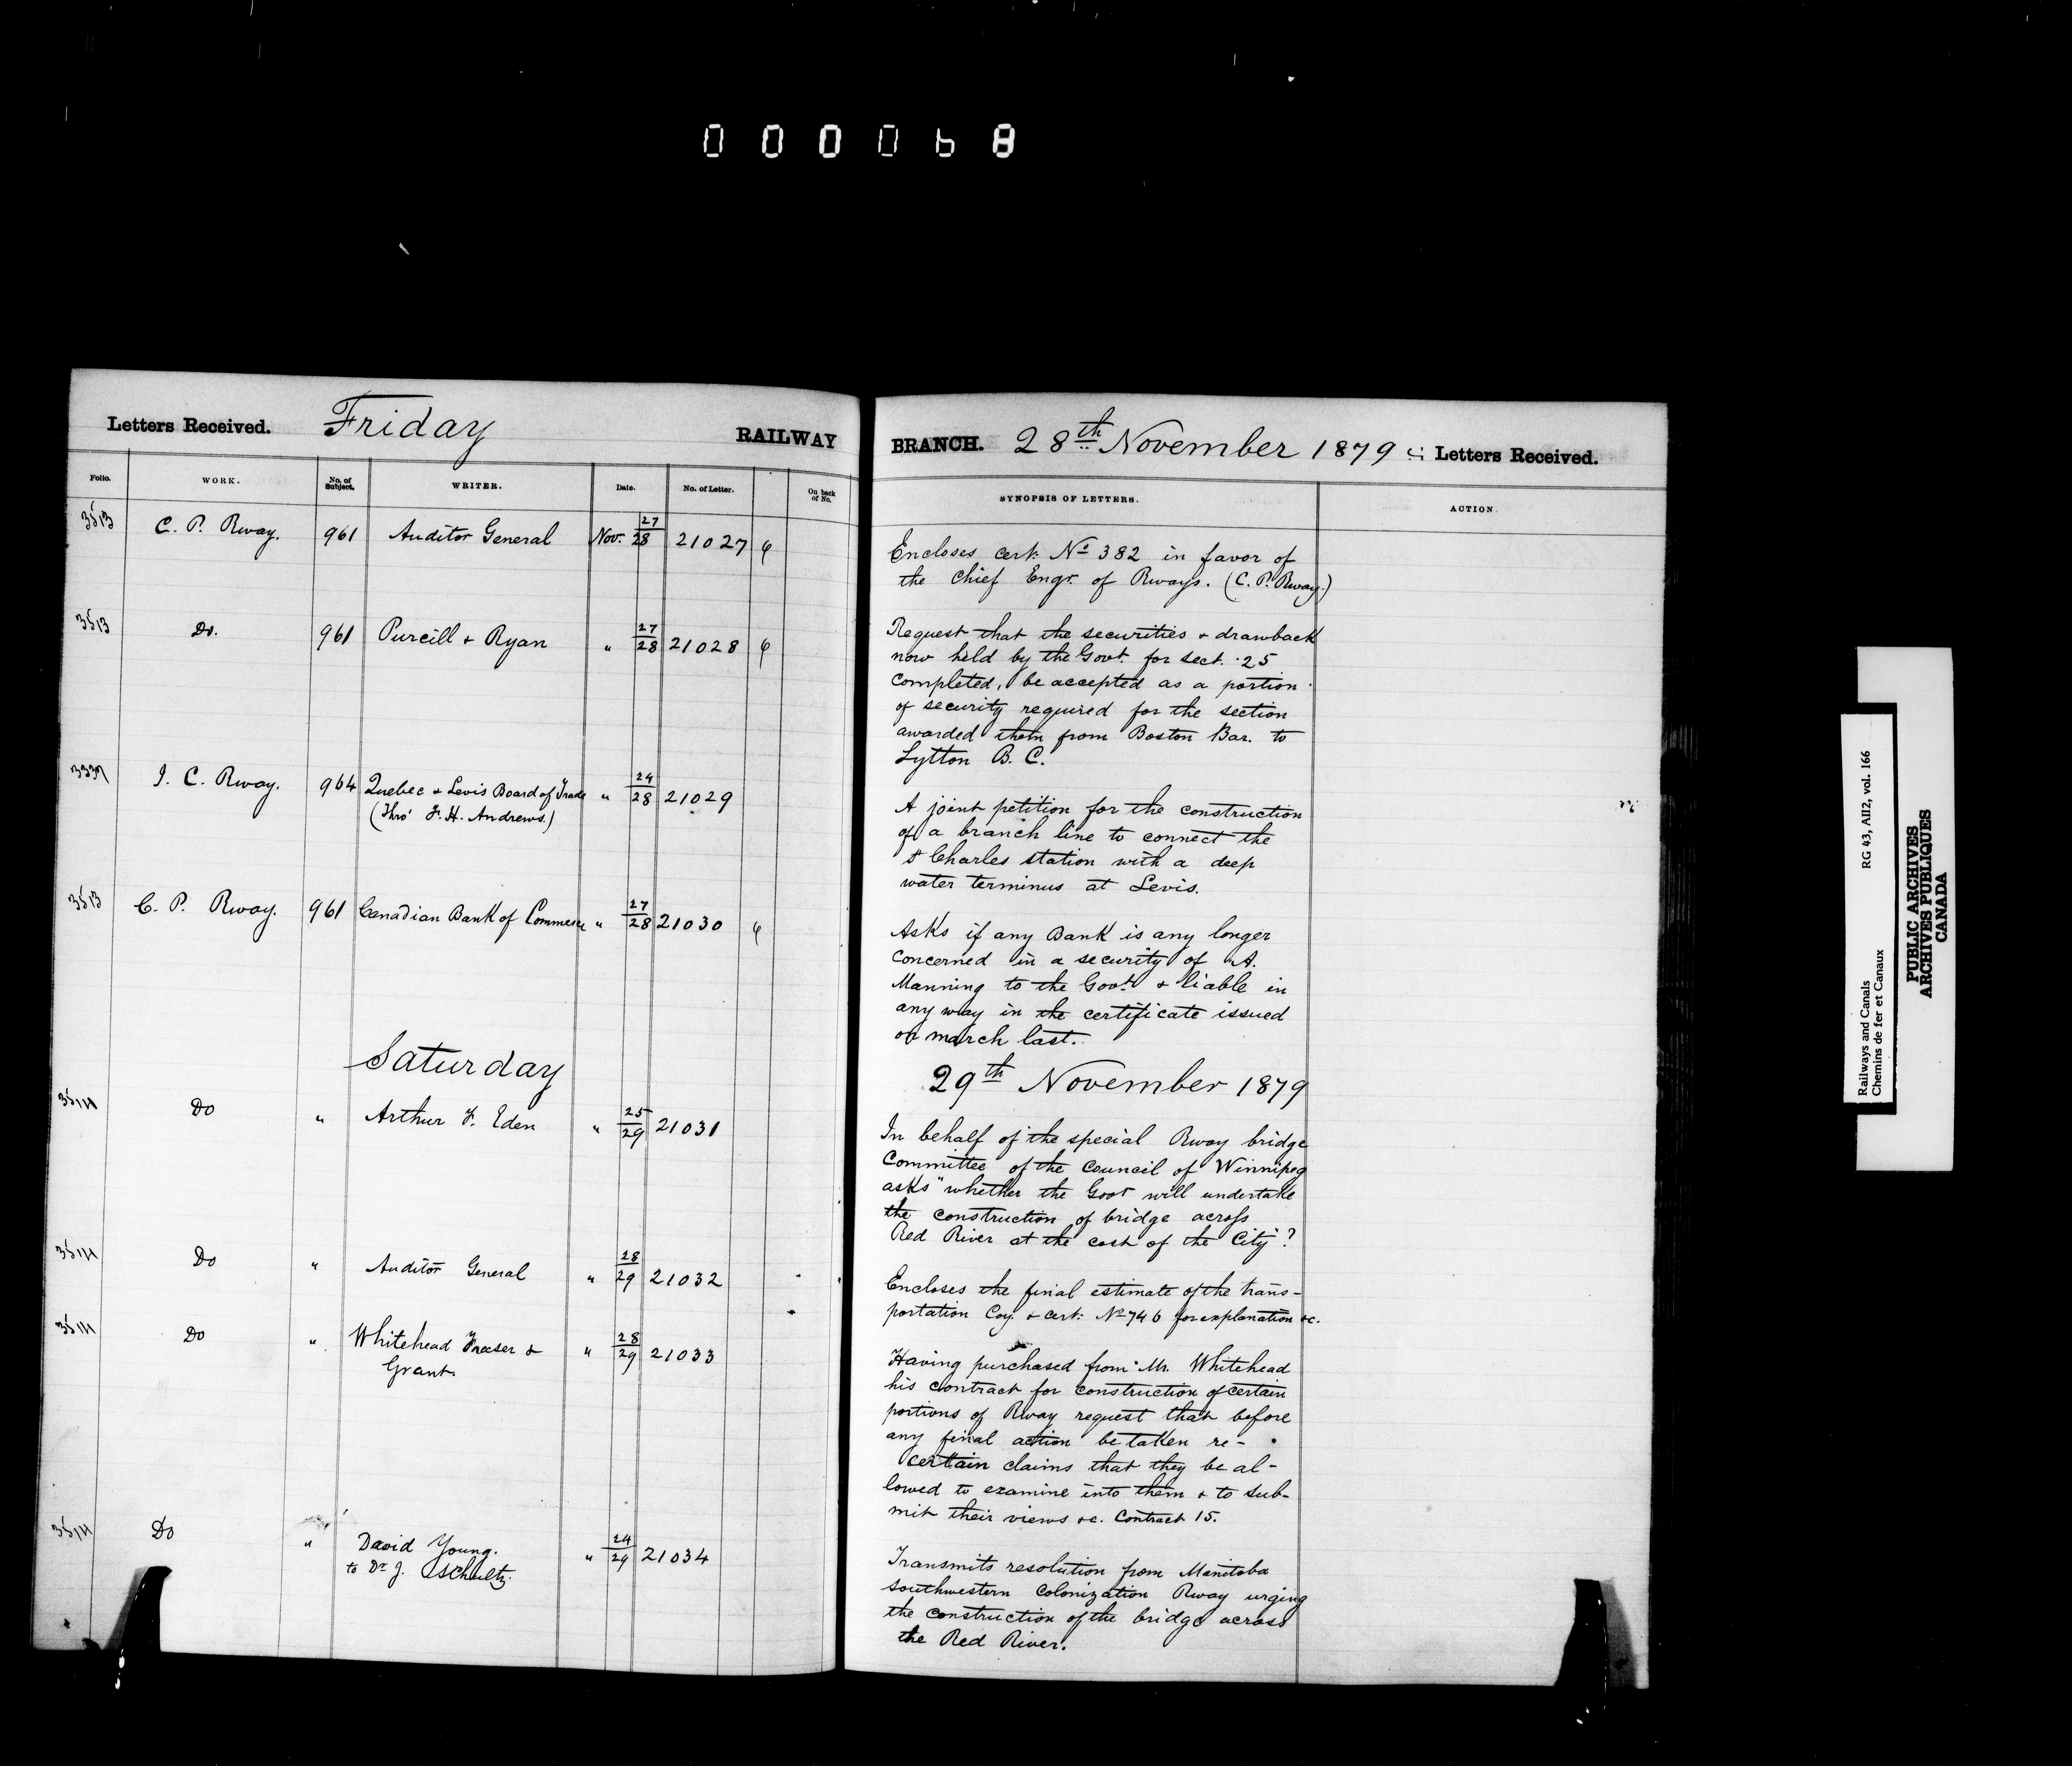 000068
Letters Received. Friday RAILWAY
Folio. WORK. No. of Subject. WRITER. Date. No. of Letter. On back of No.
3513 C. P. Rway. 961 Auditor General Nov. 27/28 21027
3513 Do. 961 Purcill & Ryan " 27/28 21028
I. C. Rway. 964 Quebec & Levis Board of Trade " 24/28 21029
(Thro' F. H. Andrews.)
3513 C. P. Rway. 961 Canadian Bank of Commerce " 27/28 21030
Saturday
Do " Arthur F. Eden " 25/29 21031
Do " Auditor General " 28/29 21032
Do " Whitehead Fraser & " 28/29 21033
Grant.
Do " David Young. " 24/29 21034
to Dr J. Schultz.
BRANCH. 28th November 1879 Letters Received.
SYNOPSIS OF LETTERS. ACTION.
Encloses cert: No 382 in favor of
the Chief Engr. of Rways. (C. P. Rway.)
Request that the securities & drawback
now held by the Govt. for sect. 25
completed, be accepted as a portion
of security required for the section
awarded them from Boston Bar. to
Lytton B. C.
A joint petition for the construction
of a branch line to connect the
St Charles station with a deep
water terminus at Levis.
Asks if any Bank is any longer
concerned in a security of A.
Manning to the Govt. & liable in
any way in the certificate issued
on march last.
29th November 1879
In behalf of the special Rway bridge
Committee of the Council of Winnipeg
asks "whether the Govt will undertake
the construction of bridge across
Red River at the cost of the City"?
Encloses the final estimate of the trans-
portation Coy. & cert: No 746 for explanation &c.
Having purchased from Mr. Whitehead
his contract for construction of certain
portions of Rway request that before
any final action be taken re-
certain claims that they be al-
lowed to examine into them & to sub-
mit their views &c. Contract 15.
Transmits resolution from Manitoba
Southwestern Colonization Rway urging
the construction of the bridge across
the Red River.
Railways and Canals RG 43, AII2, vol. 166
Chemins de fer et Canaux
PUBLIC ARCHIVES
ARCHIVES PUBLIQUES
CANADA